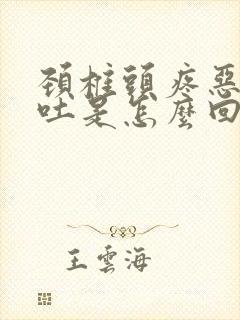 頸椎頭疼惡
吐是怎麼回
王雲海